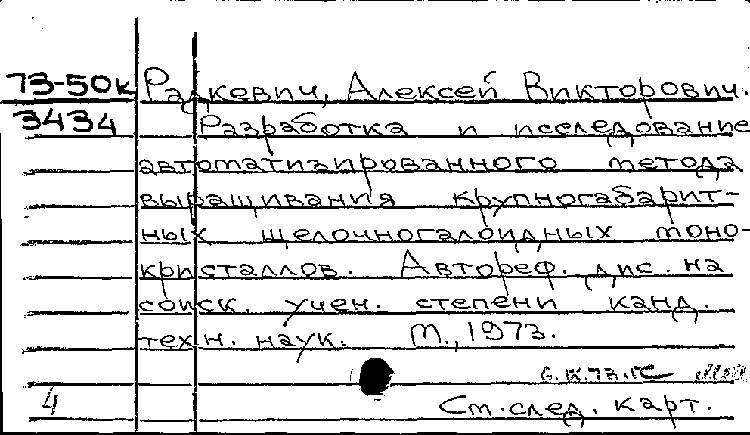 73-50к Радкевич, Алексей Викторович.
3434 Разработка и исследование
автоматизированного метода
выращивания крупногабарит-
ных щелочногалоидных моно-
кристаллов. Автореф. дис. на
соиск. учен. степени канд.
техн. наук. М., 1973.
4 См. след. карт.